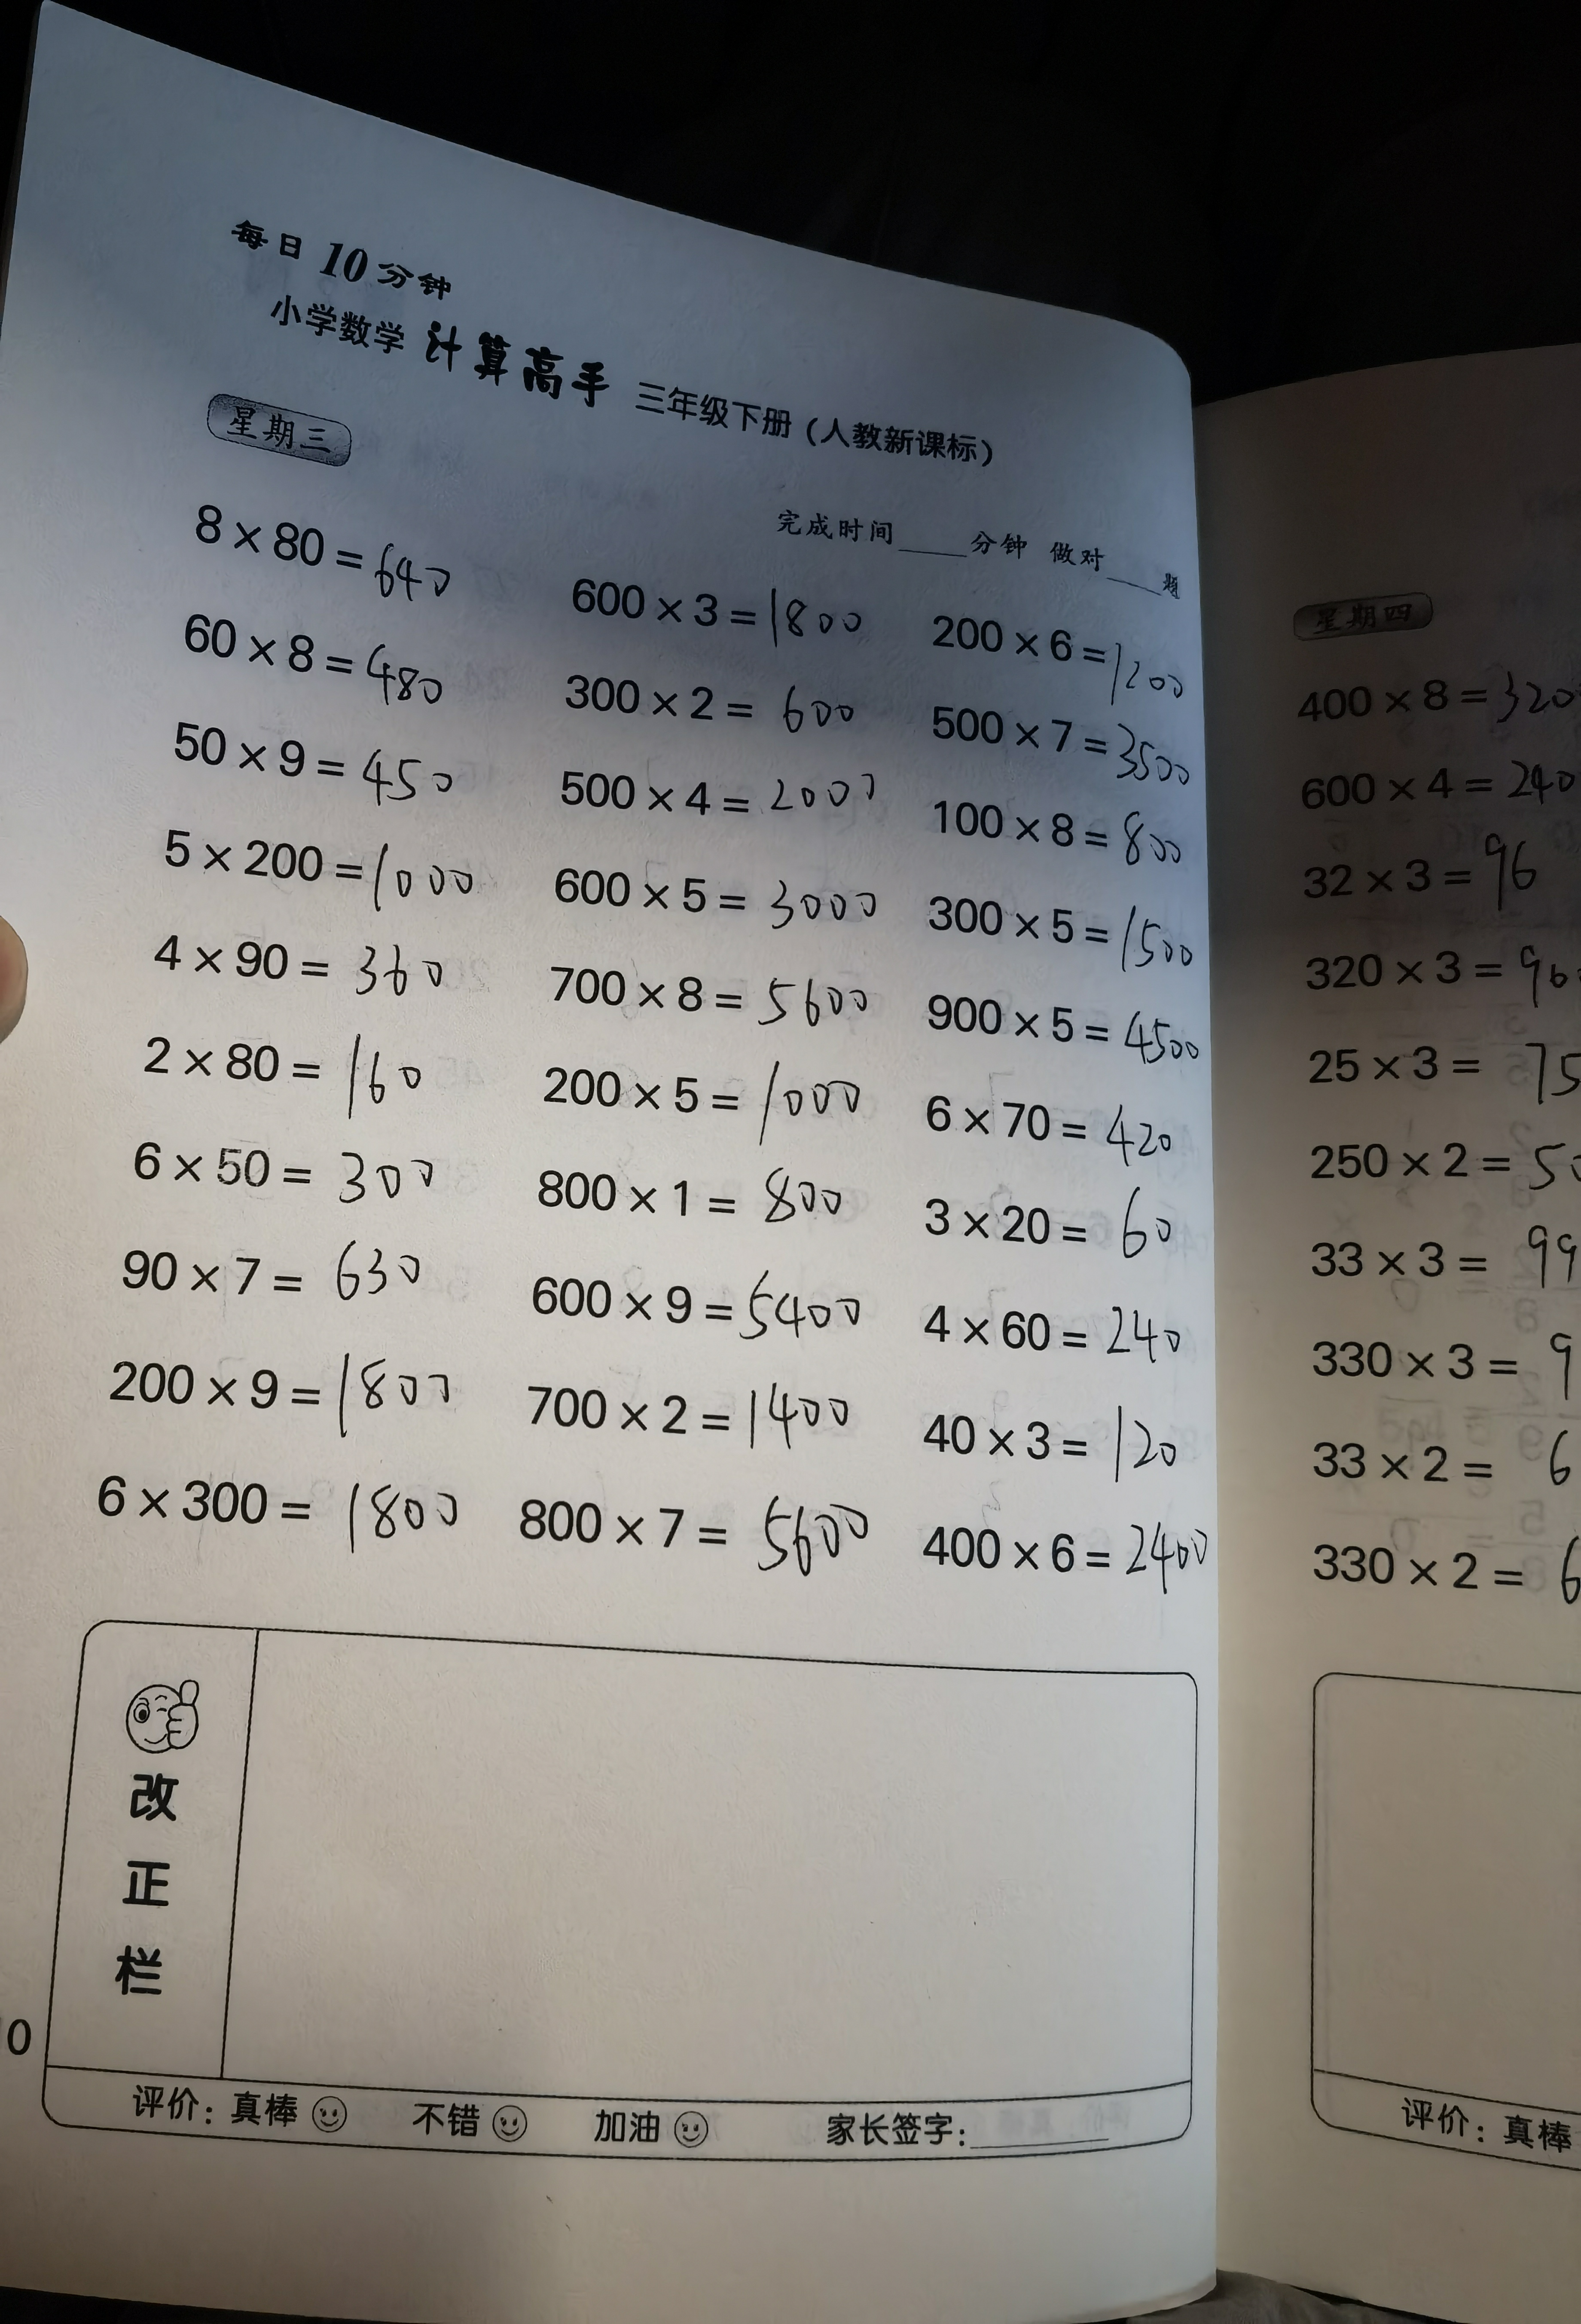 每日10分钟
小学数学 计算高手 三年级下册（人教新课标）
星期三
完成时间____分钟 做对____题
8×80=640
60×8=480
50×9=450
5×200=1000
4×90=360
2×80=160
6×50=300
90×7=630
200×9=1800
6×300=1800
600×3=1800
300×2=600
500×4=2000
600×5=3000
700×8=5600
200×5=1000
800×1=800
600×9=5400
700×2=1400
800×7=5600
200×6=1200
500×7=3500
100×8=800
300×5=1500
900×5=4500
6×70=420
3×20=60
4×60=240
40×3=120
400×6=2400
改正栏
评价：真棒 不错 加油 家长签字：________
0
星期四
400×8=320
600×4=240
32×3=96
320×3=96
25×3=75
250×2=50
33×3=99
330×3=9
33×2=6
330×2=6
评价：真棒